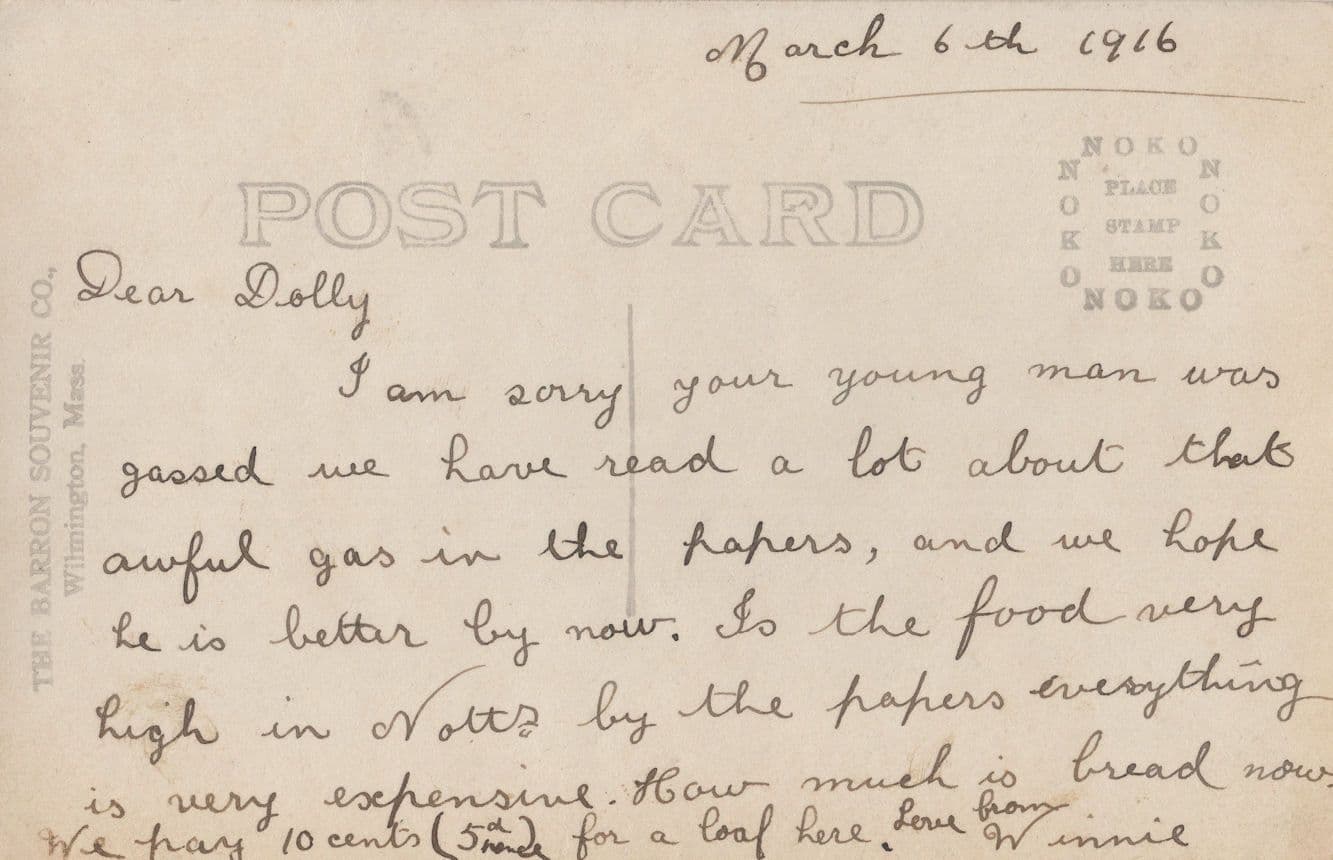 March 6th 1916
POST CARD
NOKO
NOKO
NOKO
NOKO
PLACE
STAMP
HERE
THE BARRON SOUVENIR CO.,
Wilmington, Mass.
Dear Dolly
I am sorry your young man was
gassed we have read a lot about that
awful gas in the papers, and we hope
he is better by now. Is the food very
high in Notts by the papers everything
is very expensive. How much is bread now
We pay 10 cents (5d) for a loaf here. Love from
Winnie